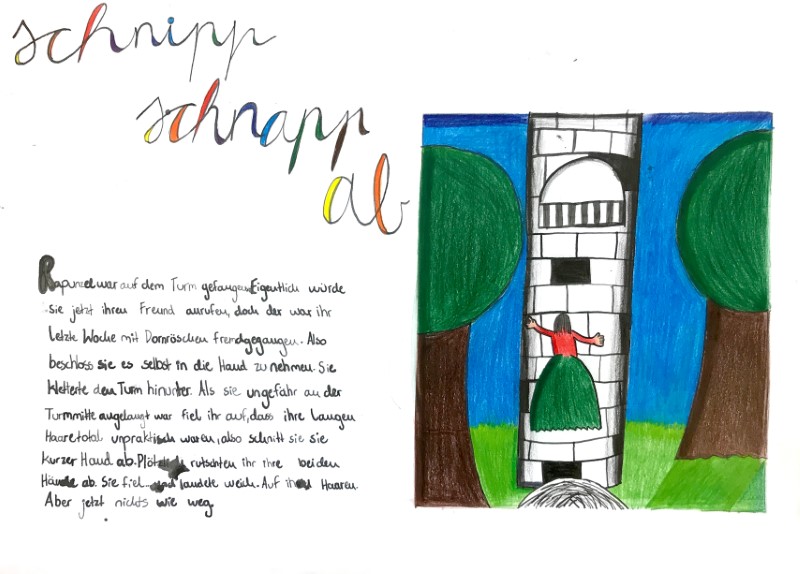 schnipp
schnapp
ab
Rapunzel war auf dem Turm gefangen. Eigentlich würde
sie jetzt ihren Freund anrufen, doch der war ihr
letzte Woche mit Dornröschen fremdgegangen. Also
beschloss sie es selbst in die Hand zu nehmen. Sie
kletterte den Turm hinunter. Als sie ungefähr an der
Turmmitte angelangt war fiel ihr auf, dass ihre langen
Haare total unpraktisch waren, also schnitt sie sie
kurzer Hand ab. Plötzlich rutschten ihr ihre beiden
Hände ab. Sie fiel... und landete weich. Auf ihren Haaren.
Aber jetzt nichts wie weg.